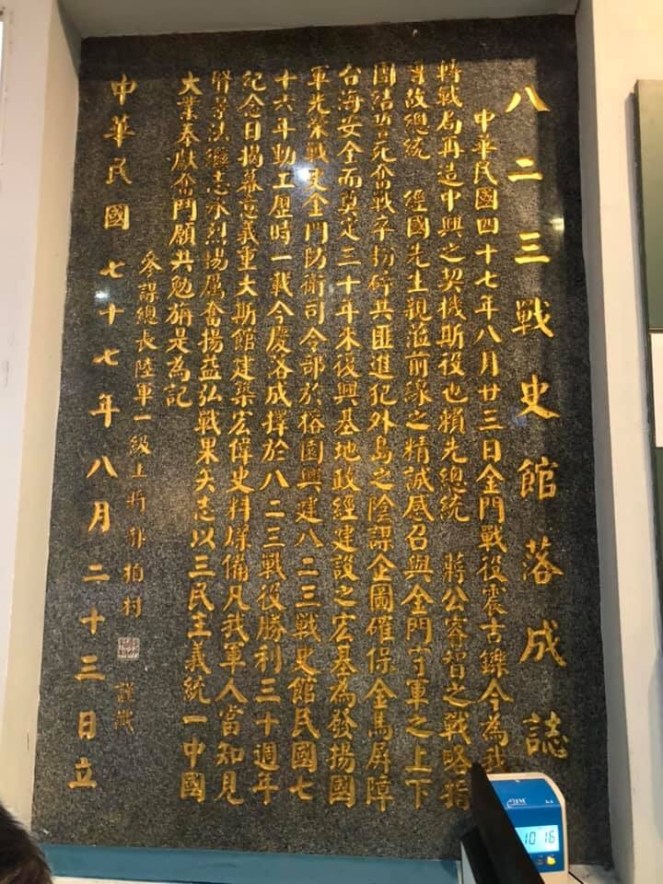 八二三戰史館落成誌
中華民國四十七年八月廿三日金門戰役震古鑠今為我
轉戰局再造中興之契機斯役也賴先總統 蔣公睿智之戰略指
導故總統 經國先生親蒞前線之精誠感召與金門守軍之上下
團結誓死奮戰卒粉碎共匪進犯外島之陰謀企圖確保金馬屏障
台海安全而奠定三十年來復興基地政經建設之宏基為發揚國
軍光榮戰史金門防衛司令部於榕園興建八二三戰史館民國七
十六年動工歷時一載今慶落成擇於八二三戰役勝利三十週年
紀念日揭幕意義重大斯館建築宏偉史料燦備凡我軍人當知見
賢思法繼志承烈揚厲奮揚益弘戰果矢志以三民主義統一中國
大業奉獻奮鬥願共勉旃是為記
參謀總長陸軍一級上將郝柏村 謹識
中華民國七十七年八月二十三日立
1016